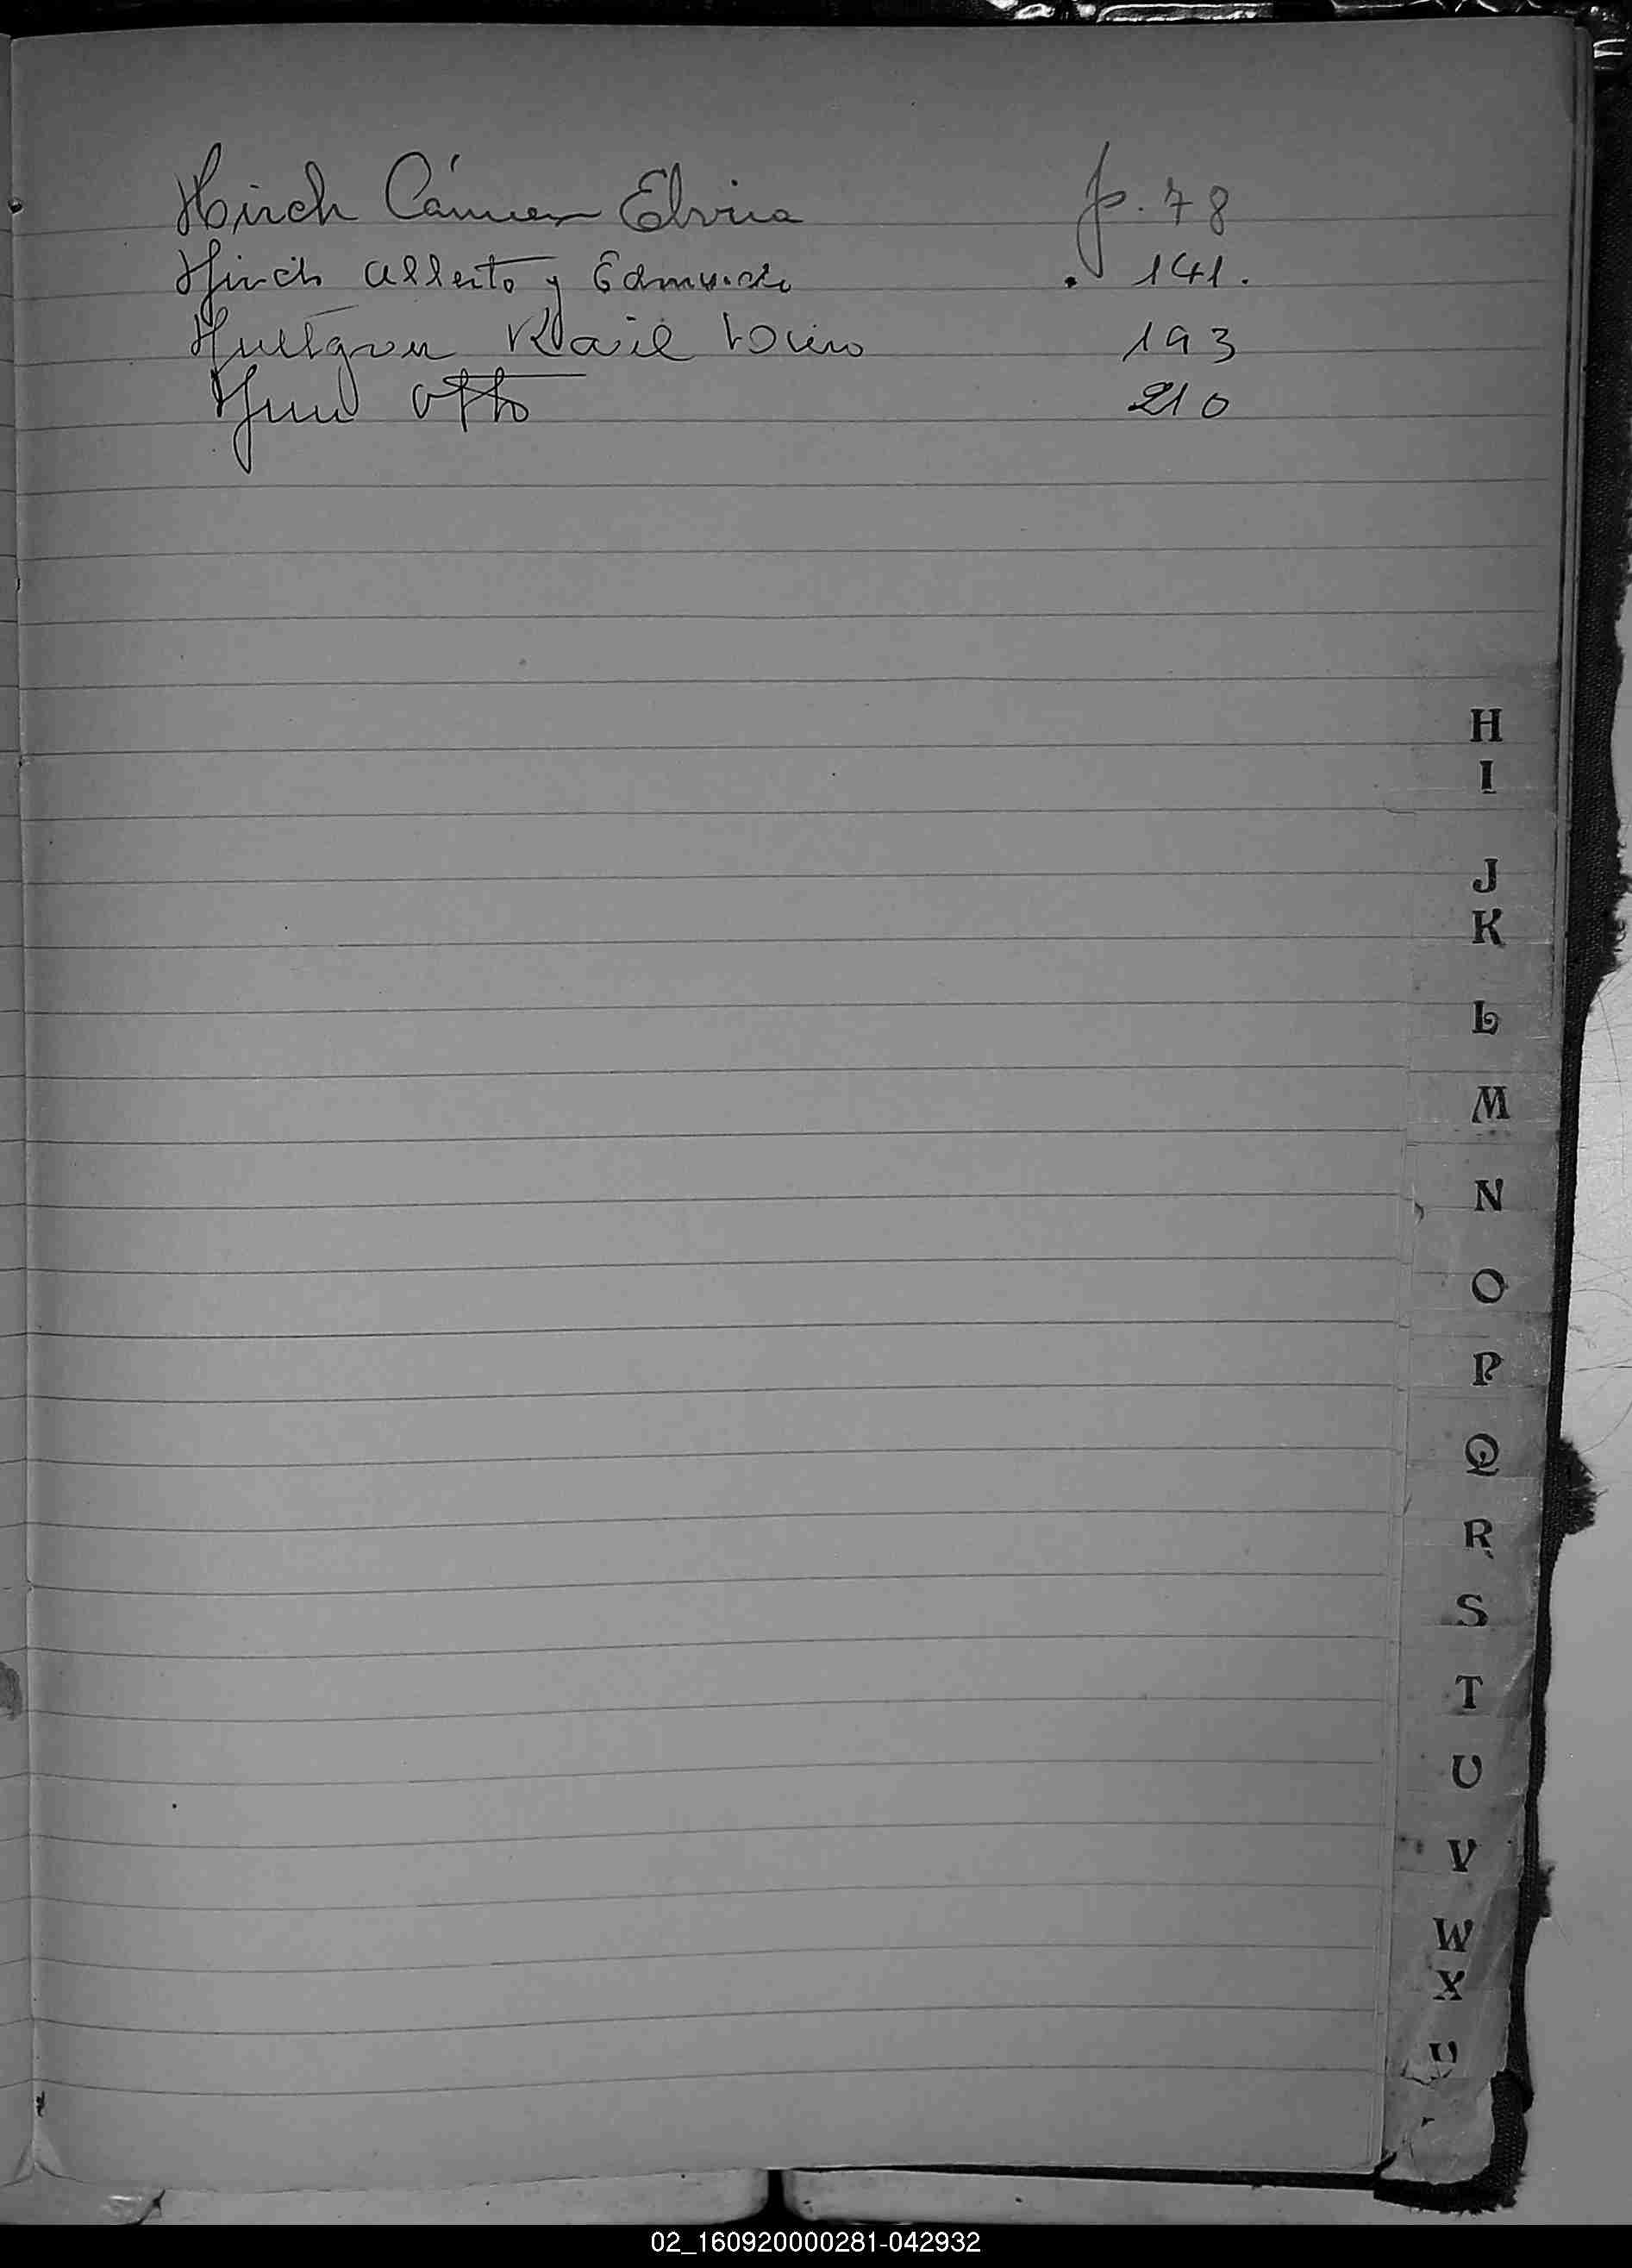 Hirch Cármen Elvira p. 78
Hirch Alberto y Edmundo . 141.
Hultgren 193
Otto 210
H
I
J
K
L
M
N
O
P
Q
R
S
T
U
V
W
X
02_160920000281-042932